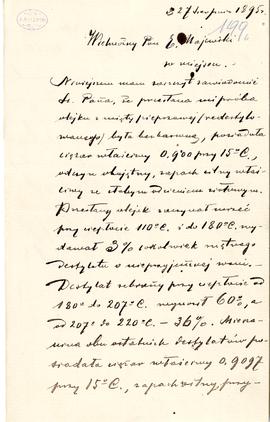 27 sierpnia 1895 r.
199
Wielmożny Pan E. Majewski
w miejscu.
Niniejszem mam zaszczyt zawiadomić
W. Pana, że przesłana mi próba
olejku z mięty pieprzowej (redestylo-
wanego) była bezbarwna, posiadała
ciężar właściwy 0,900 przy 15° C.,
odczyn obojętny, zapach silny właści-
wy ze słabym odcieniem
Przesłany olejek zaczynał wrzeć
przy ciepłocie 110° C. i do 180° C. wy-
dawał 3% cokolwiek mętnego
destylatu o nieprzyjemnej woni.
Destylat zebrany przy ciepłocie od
180° do 207° C. wynosił 60%, a
od 207° do 220° C. – 36%. Miesza-
nina obu ostatnich destylatów po-
siadała ciężar właściwy 0,9097
przy 15° C., zapach silny, przy-